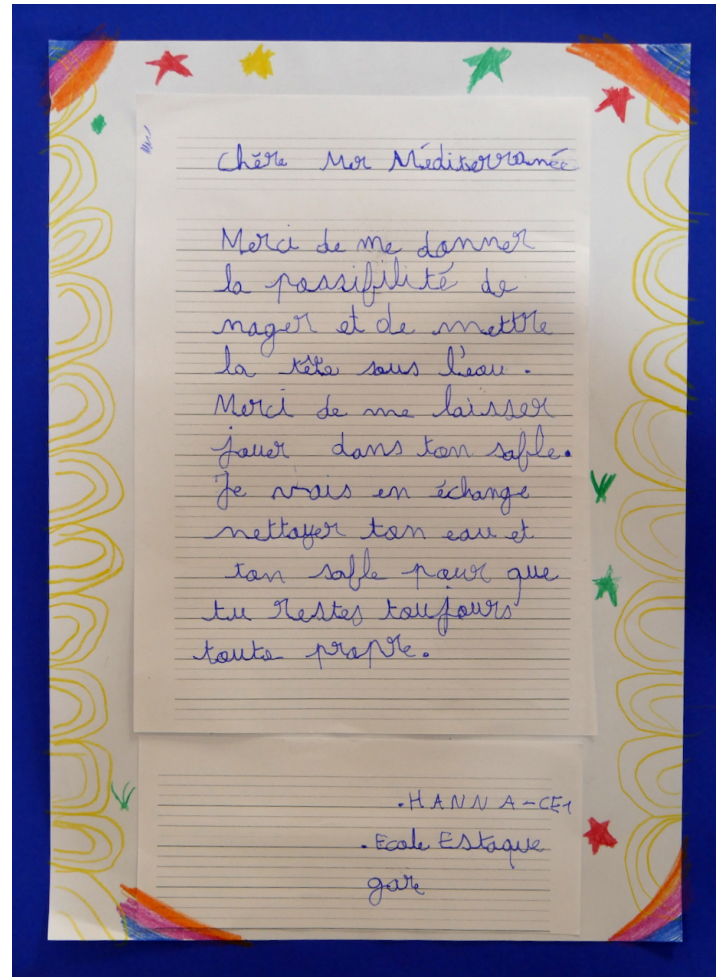 Chère Mer Méditerranée
Merci de me donner
la possibilité de
nager et de mettre
la tête sous l'eau.
Merci de me laisser
jouer dans ton sable.
Je vais en échange
nettoyer ton eau et
ton sable pour que
tu restes toujours
toute propre.
.HANNA-CE1
.Ecole EStaque
gare